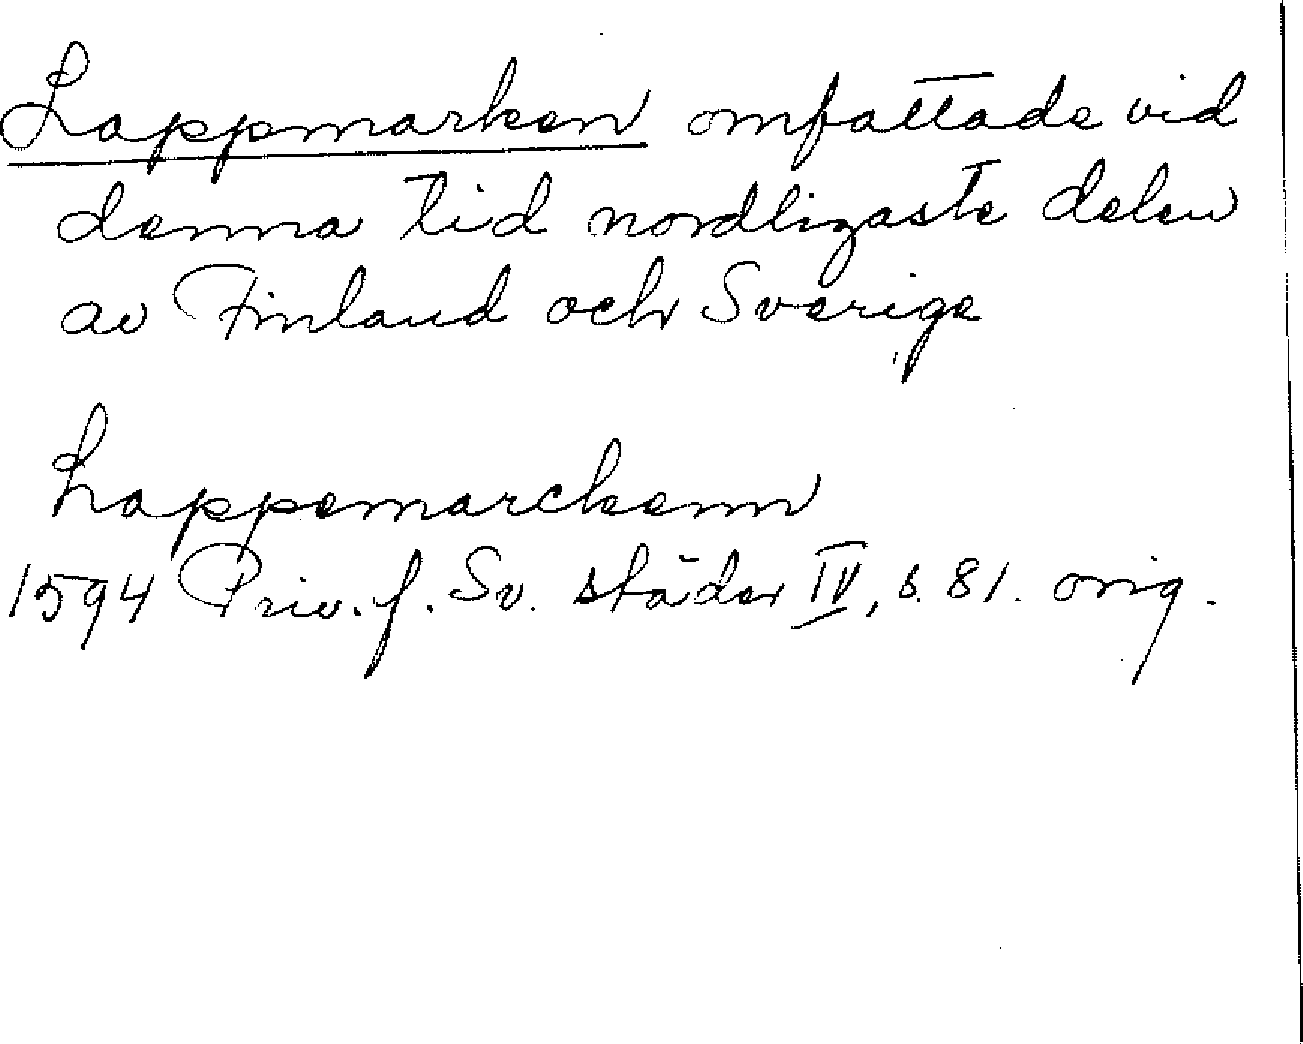 Lappmarken omfattade vid
denna tid nordligaste delen
av Finland och Sverige
Lappemarckenn
1594 Priv. f. Sv. städer IV, s. 81. orig.